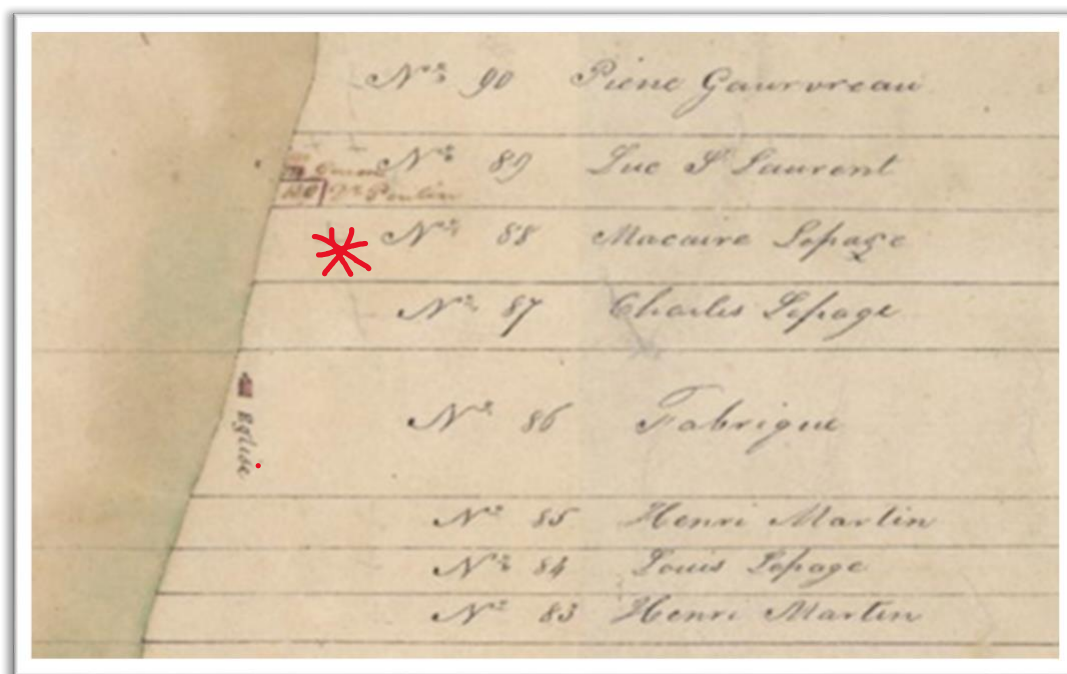 Nº 90 Pierre Gauvreau
Nº 89 Luc St Laurent
Poulin
Nº 88 Macaire Lepage
Nº 87 Charles Lepage
Nº 86 Fabrique
Eglise
Nº 85 Henri Martin
Nº 84 Louis Lepage
Nº 83 Henri Martin